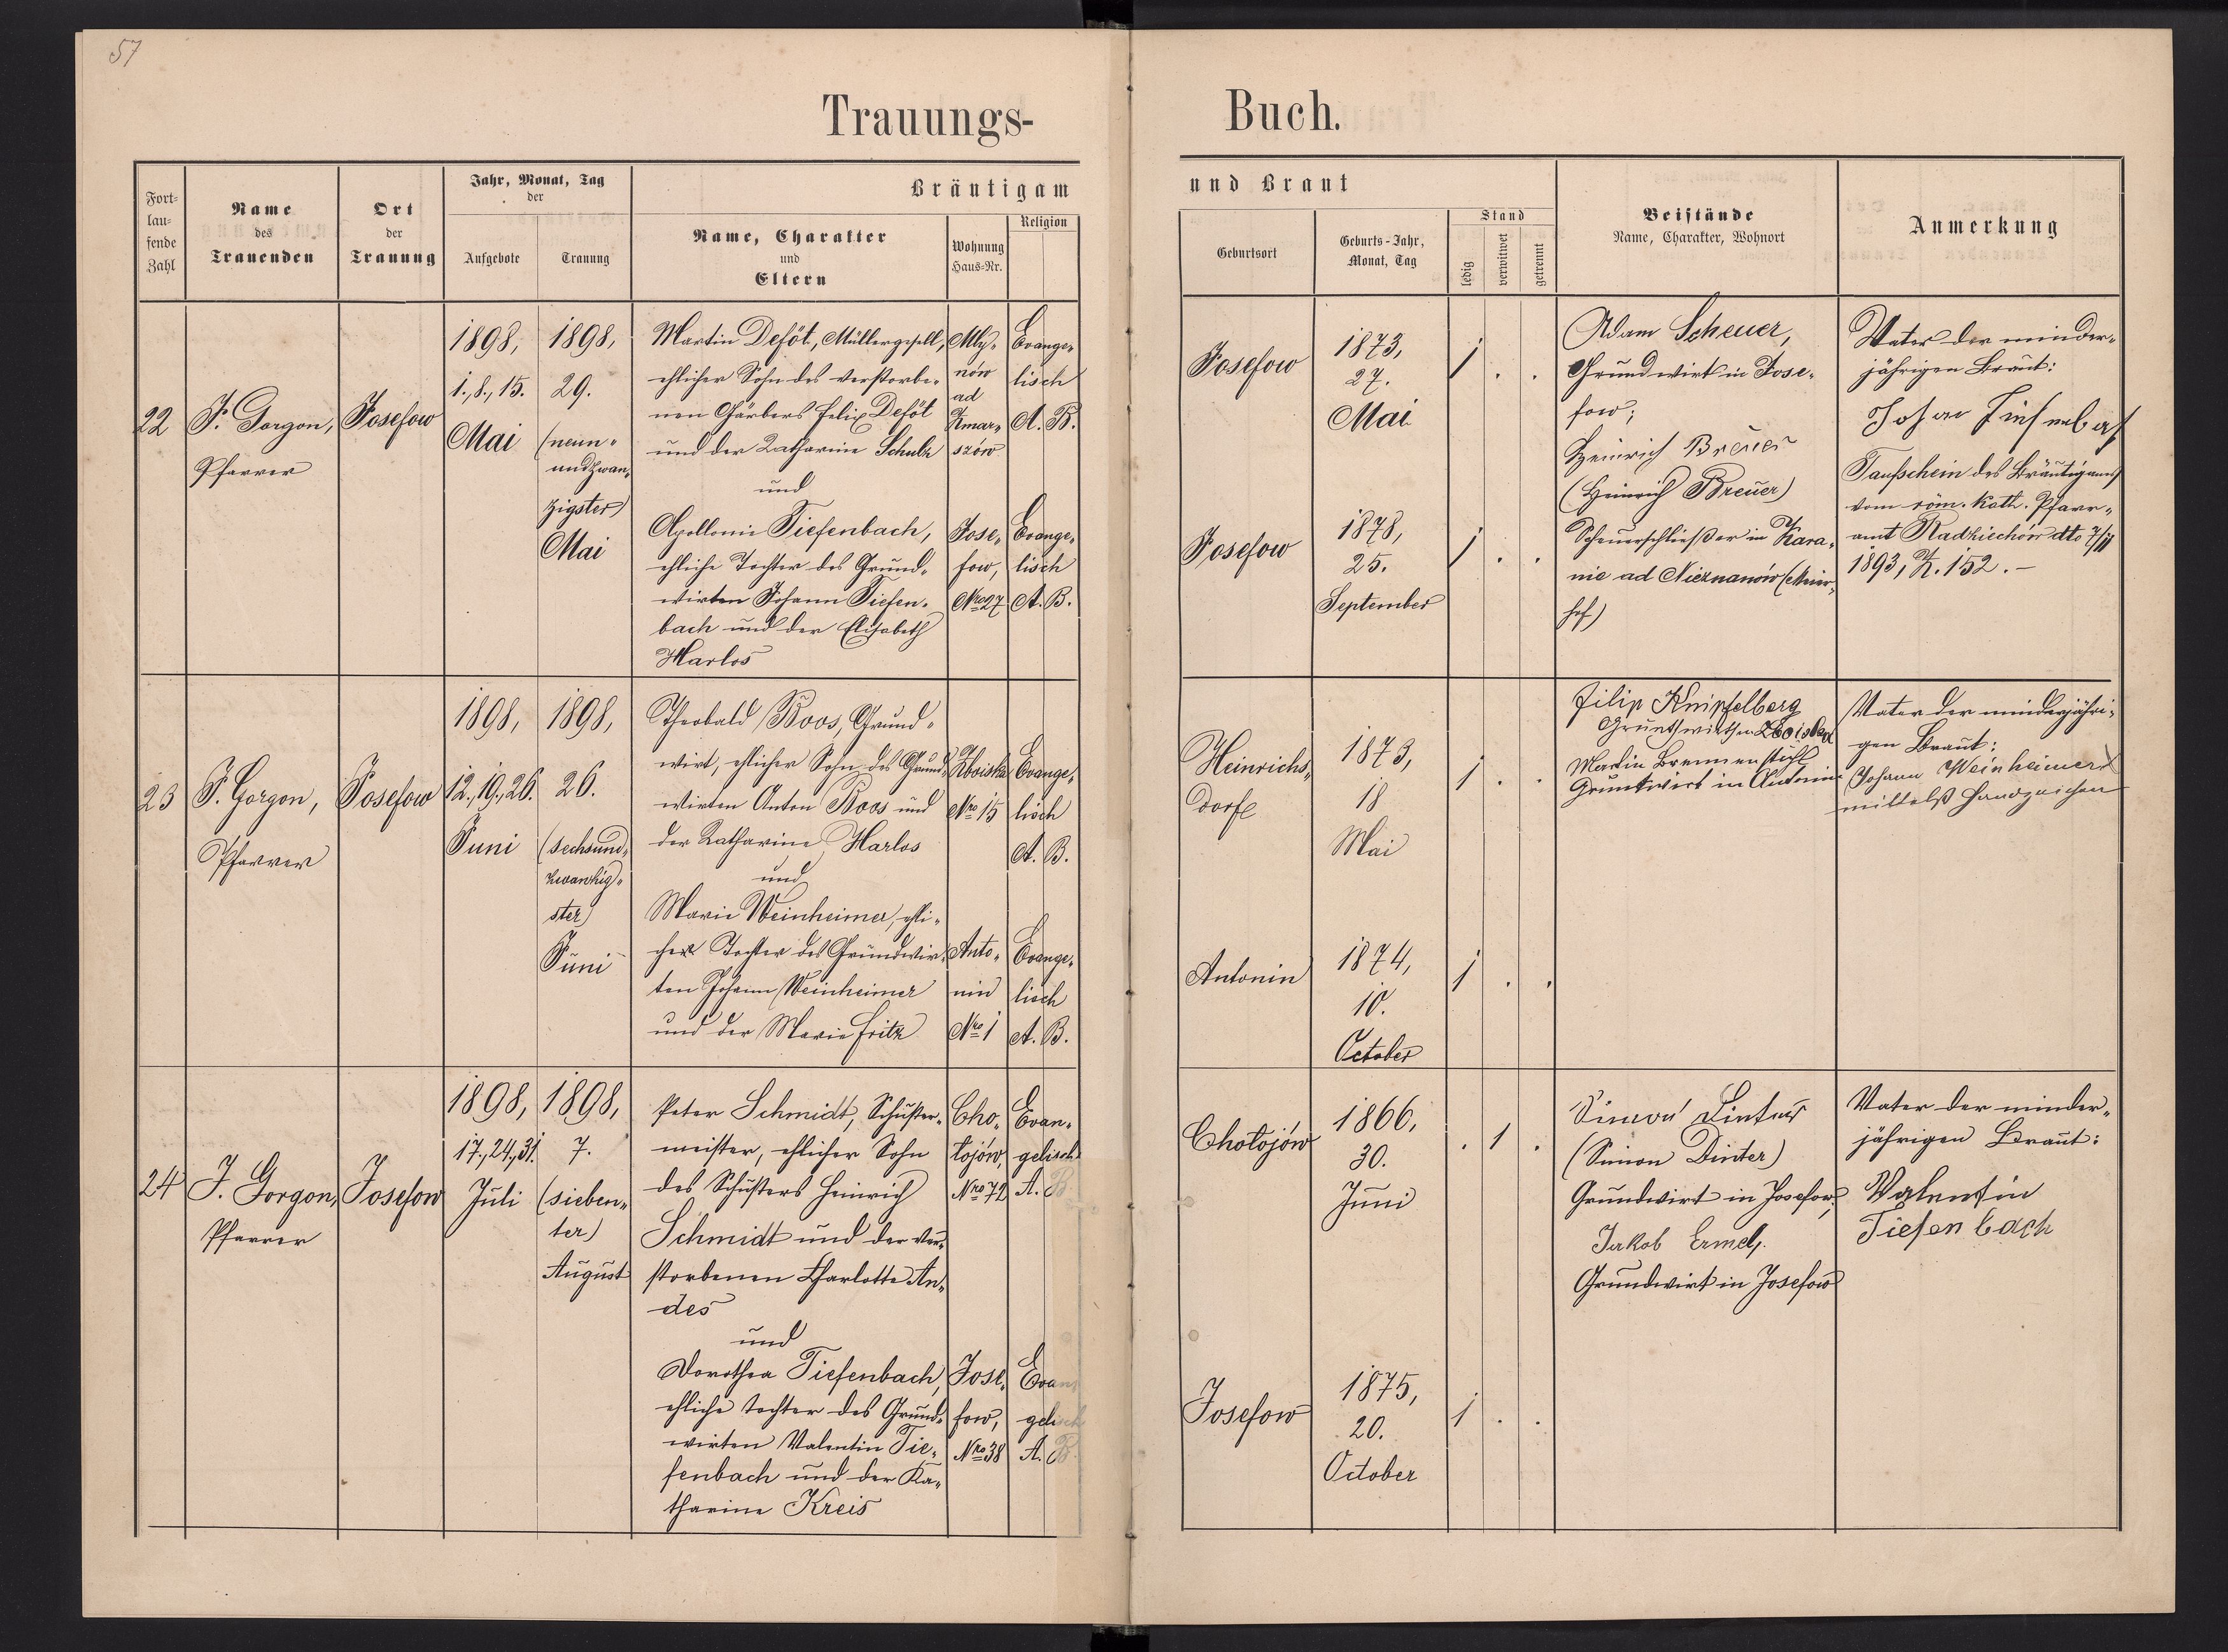 57
Trauungs-
Buch.
Fort-
lau-
fende
Zahl
Name
des
Trauenden
Ort
der
Trauung
Jahr, Monat, Tag
der
Aufgebote
Trauung
Bräutigam
Name, Charakter
und
Eltern
Wohnung
Haus-Nr.
Religion
und Braut
Geburtsort
Geburts-Jahr,
Monat, Tag
Stand
ledig
verwitwet
getrennt
Beistände
Name, Charakter, Wohnort
Anmerkung
22
J. Gorgon,
Pfarrer
Josefow
1898,
1., 8., 15.
Mai
1898,
29.
(neun-
undzwan-
zigster)
Mai
Martin Deföt, Müllergesell,
ehlicher Sohn des verstorbe-
nen Gärbers Felix Deföt
und der Katharine Schulz
und
Apollonie Tiefenbach,
ehliche Tochter des Grund-
wirten Johann Tiefen-
bach und der Elisabeth
Harlos
Mły-
nów
ad
Tmar-
szów
Evange-
lisch
A. B.
Jose-
fow,
Nro 27
Evange-
lisch
A. B.
Josefow
1873,
27.
Mai
1 . .
Josefow
1878,
25.
September
1 . .
Adam Scheuer,
Grundwirt in Jose-
fow;
Heinrich Breuer
(Heinrich Breuer)
Scheuerschließer in Kara-
nie ad Nieznanów (Meier-
hof)
Vater der minder-
jährigen Braut:
Johan Tiefenbach
Taufschein des Bräutigams
vom röm. kath. Pfarr-
amt Radziechów dto 7/11
1893, Z. 152. -
23
J. Gorgon,
Pfarrer
Josefow
1898,
12., 19., 26.
Juni
1898,
26.
(sechsund-
zwanzig-
ster)
Juni
Theobald Boos, Grund-
wirt, ehlicher Sohn des Grund-
wirten Anton Boos und
der Katharine Harlos
und
Marie Weinheimer, ehli-
che Tochter des Grundwir-
ten Johann Weinheimer
und der Marie Fritz
Zboiska
Nro 15
Evange-
lisch
A. B.
Anto-
nin
Nro 1
Evange-
lisch
A. B.
Heinrichs-
dorf
1873,
18
Mai
1 . .
Antonin
1874,
10.
October
1 . .
Filip Knipfelberg
Grunthwirth in Zboiska
Martin Brennenstuhl
Gruntwirt in Antonin
Vater der minderjähri-
gen Braut:
Johann Weinheimer
mittelst Handzeichen
24
J. Gorgon,
Pfarrer
Josefow
1898,
17., 24., 31.
Juli
1898,
7.
(sieben-
ter)
August
Peter Schmidt, Schuster-
meister, ehlicher Sohn
des Schusters Heinrich
Schmidt und der ver-
storbenen Charlotte An-
des
und
Dorothea Tiefenbach,
ehliche Tochter des Grund-
wirten Valentin Tie-
fenbach und der Ka-
tharine Kreis
Cho-
łojów,
Nro 72
Evan-
gelisch
A. B.
Jose-
fow,
Nro 38
Evan-
gelisch
A. B.
Chołojów
1866,
30.
Juni
. 1 .
Josefow
1875,
20.
October
1 . .
Simon Dinter
(Simon Dinter)
Grundwirt in Josefow;
Jakob Ermel,
Grundwirt in Josefow
Vater der minder-
jährigen Braut:
Valentin
Tiefenbach